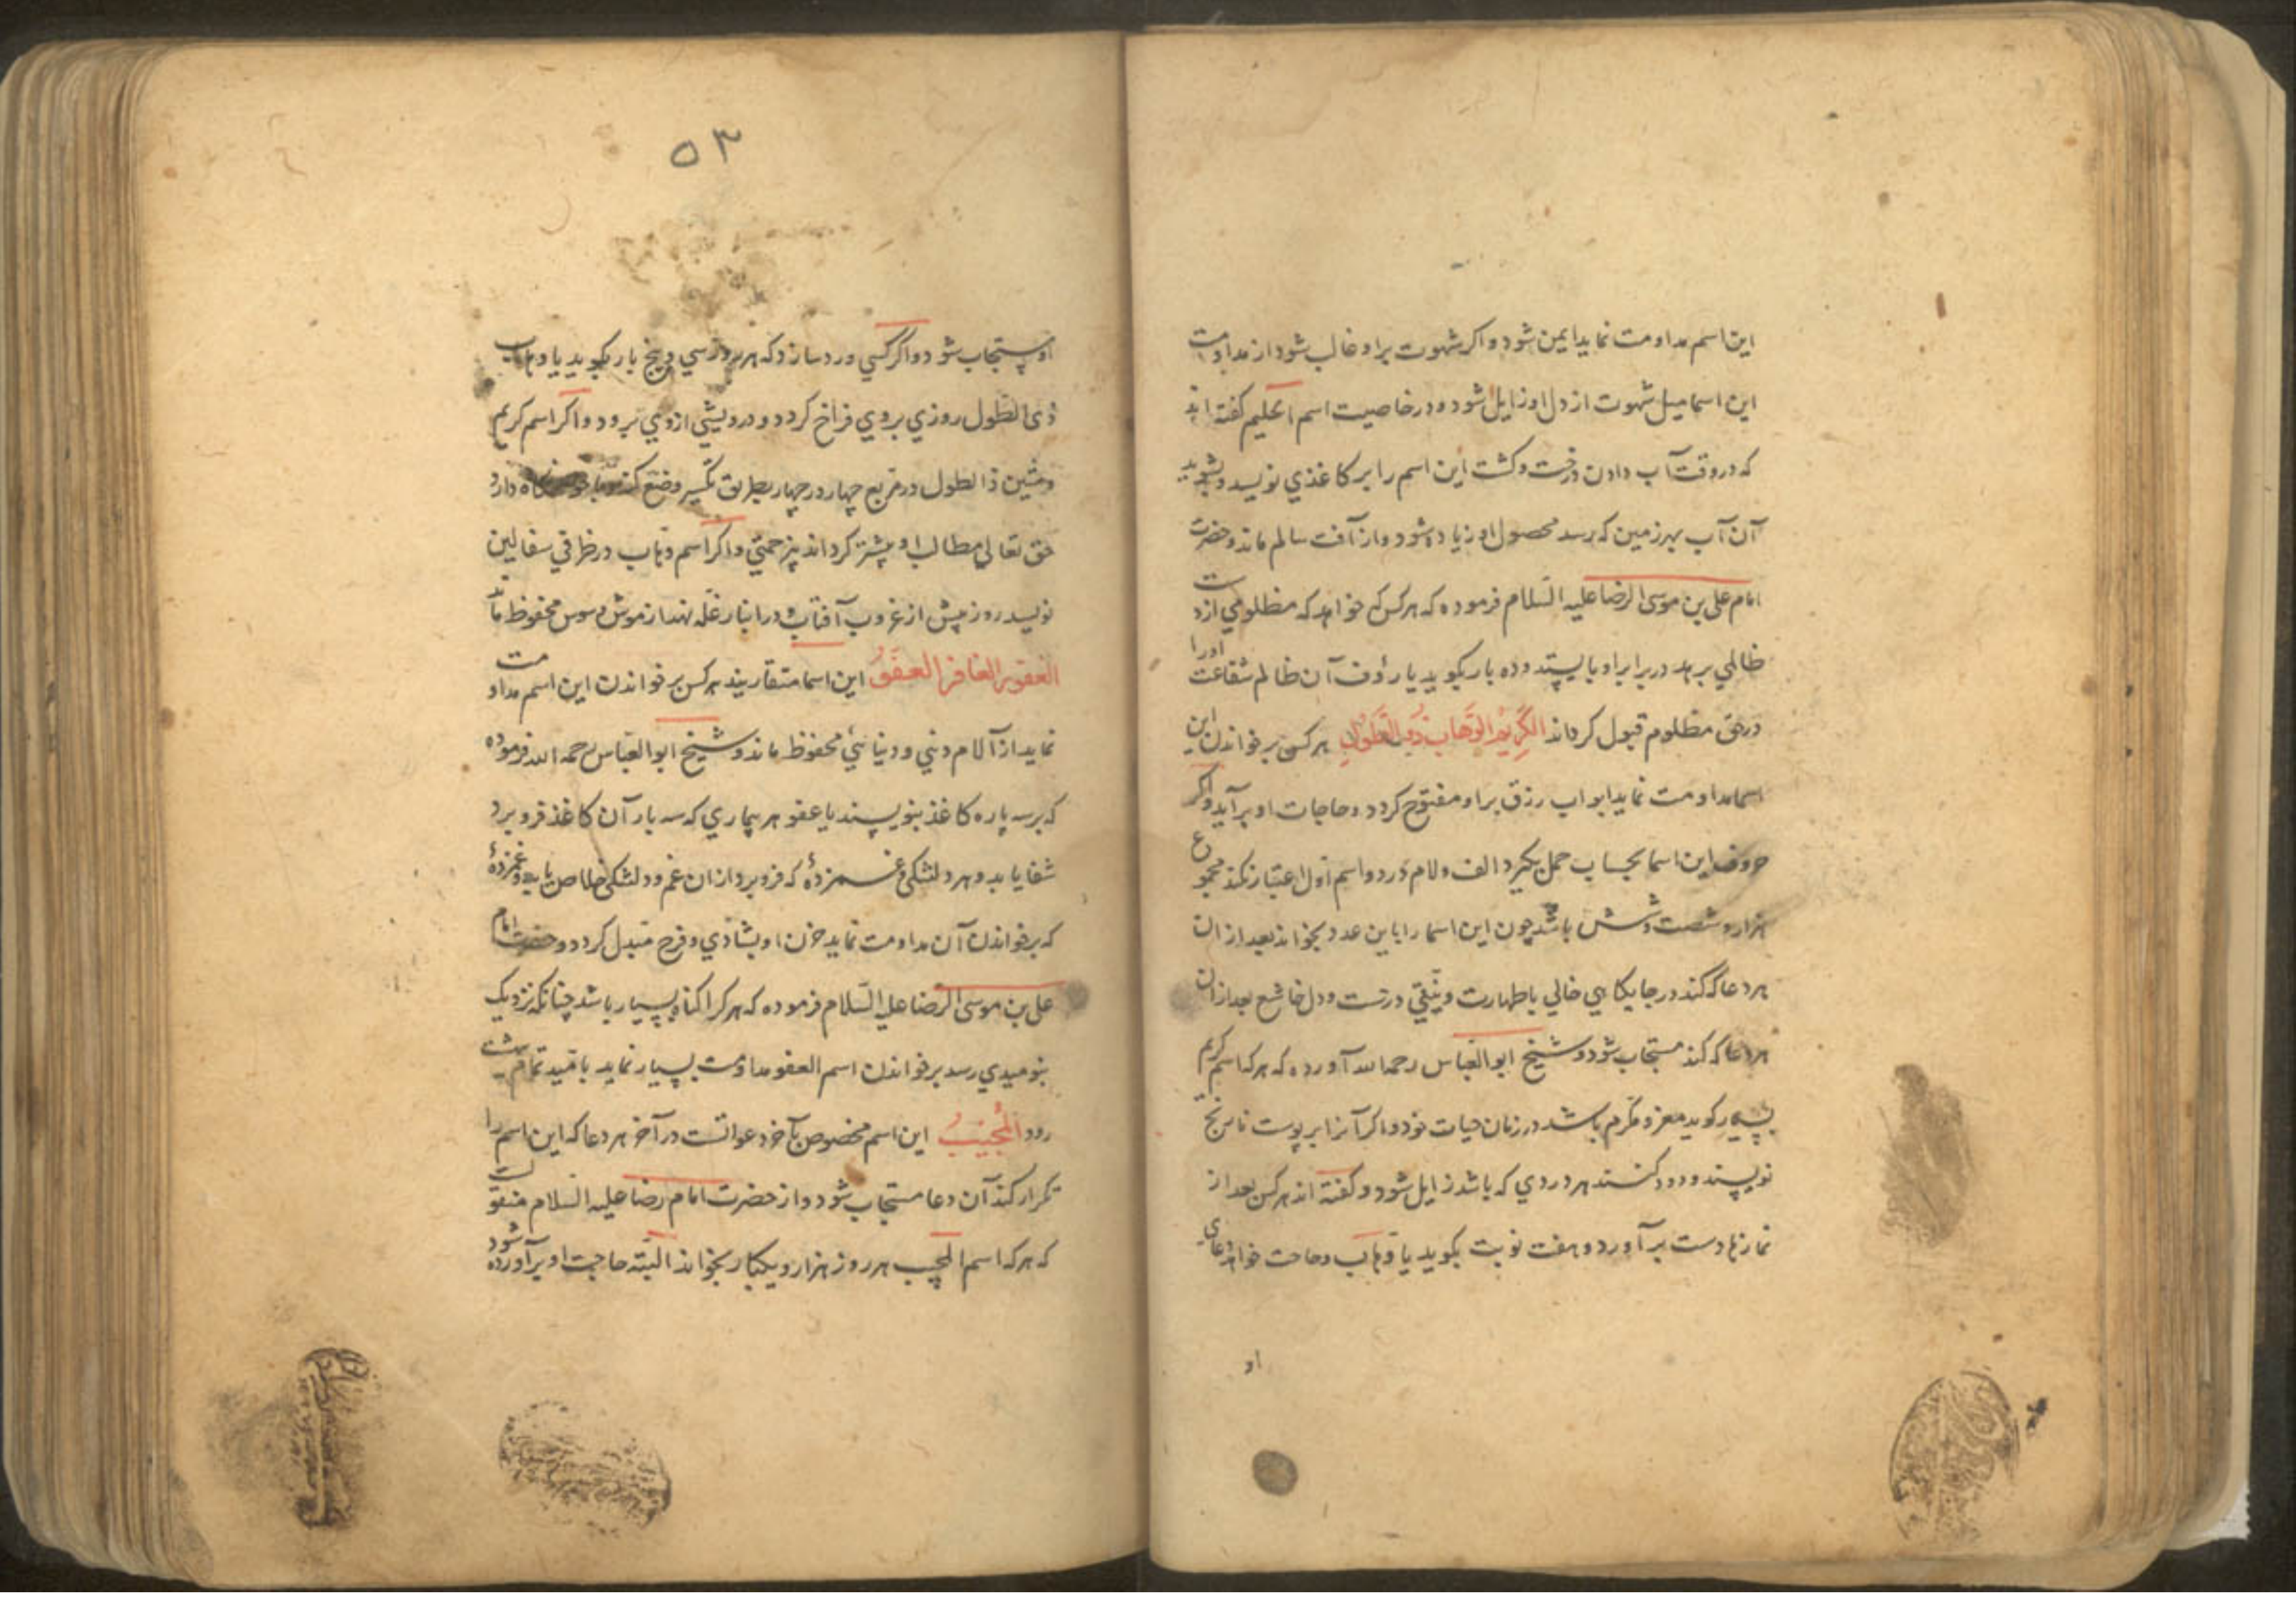 این اسم مداومت نماید ایمن شود و اکر شهوت براو غالب شود از مداومت
این اسما میل شهوت از دل او زایل شود و در خاصیت اسم اعلیم کفته اند
که در وقت آب دادن درخت و کشت این اسم را بر کاغذی نویسد و بشوید
آن آب بهر زمین که برسد محصول او زیاده شود و از آفت سالم ماند و حضرت
امام علی بن موسی الرضا علیه السلام فرموده که هرکس که خواهد که مظلومی از دست
ظالمی برهد در برابر او بایستد و ده بار بکوید یا رؤف آن ظالم شفاعت اورا
در حق مظلوم قبول کرداند الکریم الوهاب ذی الطول هرکس بر خواندن این
اسما مداومت نماید ابواب رزق براو مفتوح کردد و حاجات او برآید و اکر
حروف این اسما بحساب جمل بکیرد الف و لام در دو اسم اول اعتبار نکند مجموع
هزار و شصت و شش باشد چون این اسما را باین عدد بخواند بعد از ان
هر دعا که کند در جایکاهی خالی باطهارت و نیتی درست و دل خاشع بعد از ان
هر دعا که کند مستجاب شود و شیخ ابو العباس رحمه الله آورده که هر که اسم کریم
بسیار کوید معزز و مکرم باشد در زمان حیات خود و اکر آنرا بر پوست نارنج
نویسند و دود کنند هر دردی که باشد زایل شود و کفته اند هرکس بعد از
نمازها دست برآورد و هفت نوبت بکوید یا وهاب و حاجت خواهد دعای
او
۵۳
او مستجاب شود و اکر کسی ورد سازد که هر روز سی و پنج بار بکوید یا وهاب
ذی الطول روزی بروی فراخ کردد و درویشی ازوی برود و اکر اسم کریم
ومتین ذالطول در مربع چهار در چهار بطریق تکسیر وضع کند و با خود نکاه دارد
حق تعالی مطالب او میسر کرداند بیزحمتی و اکر اسم وهاب در ظرفی سفالین
نویسد روز پیش از غروب آفتاب و در انبار غله نهد از موش و سوس محفوظ ماند
الغفور الغافر العفو این اسما متقاربند هرکس بر خواندن این اسم مداومت
نماید از آلام دینی و دنیائی محفوظ ماند و شیخ ابو العباس رحمه الله فرموده
که بر سه پاره کاغذ بنویسند یا عفو هر بیماری که سه بار آن کاغذ فرو برد
شفا یابد و هر دلتنکی و غمزدهٔ که فرو برد ازان غم و دلتنکی خلاص یابد و غمزدهٔ
که بر خواندن آن مداومت نماید حزن او بشادی و فرح مبدل کردد و حضرت امام
علی بن موسی الرضا علیه السلام فرموده که هر کرا کناه بسیار باشد چنانکه نزدیک
بنومیدی رسد بر خواندن اسم العفو مداومت بسیار نماید بامید تمام بهشت
رود المجیب این اسم مخصوص بآخر دعواتست در آخر هر دعا که این اسم را
تکرار کند آن دعا مستجاب شود و از حضرت امام رضا علیه السلام منقولست
که هر که اسم المجیب هر روز هزار و یکبار بخواند البته حاجت او برآورده شود